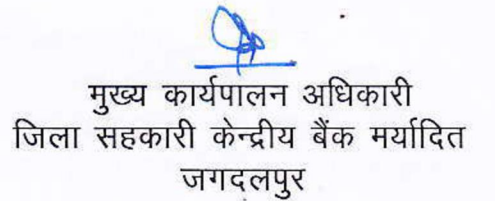 मुख्य कार्यपालन अधिकारी
जिला सहकारी केन्द्रीय बैंक मर्यादित
जगदलपुर